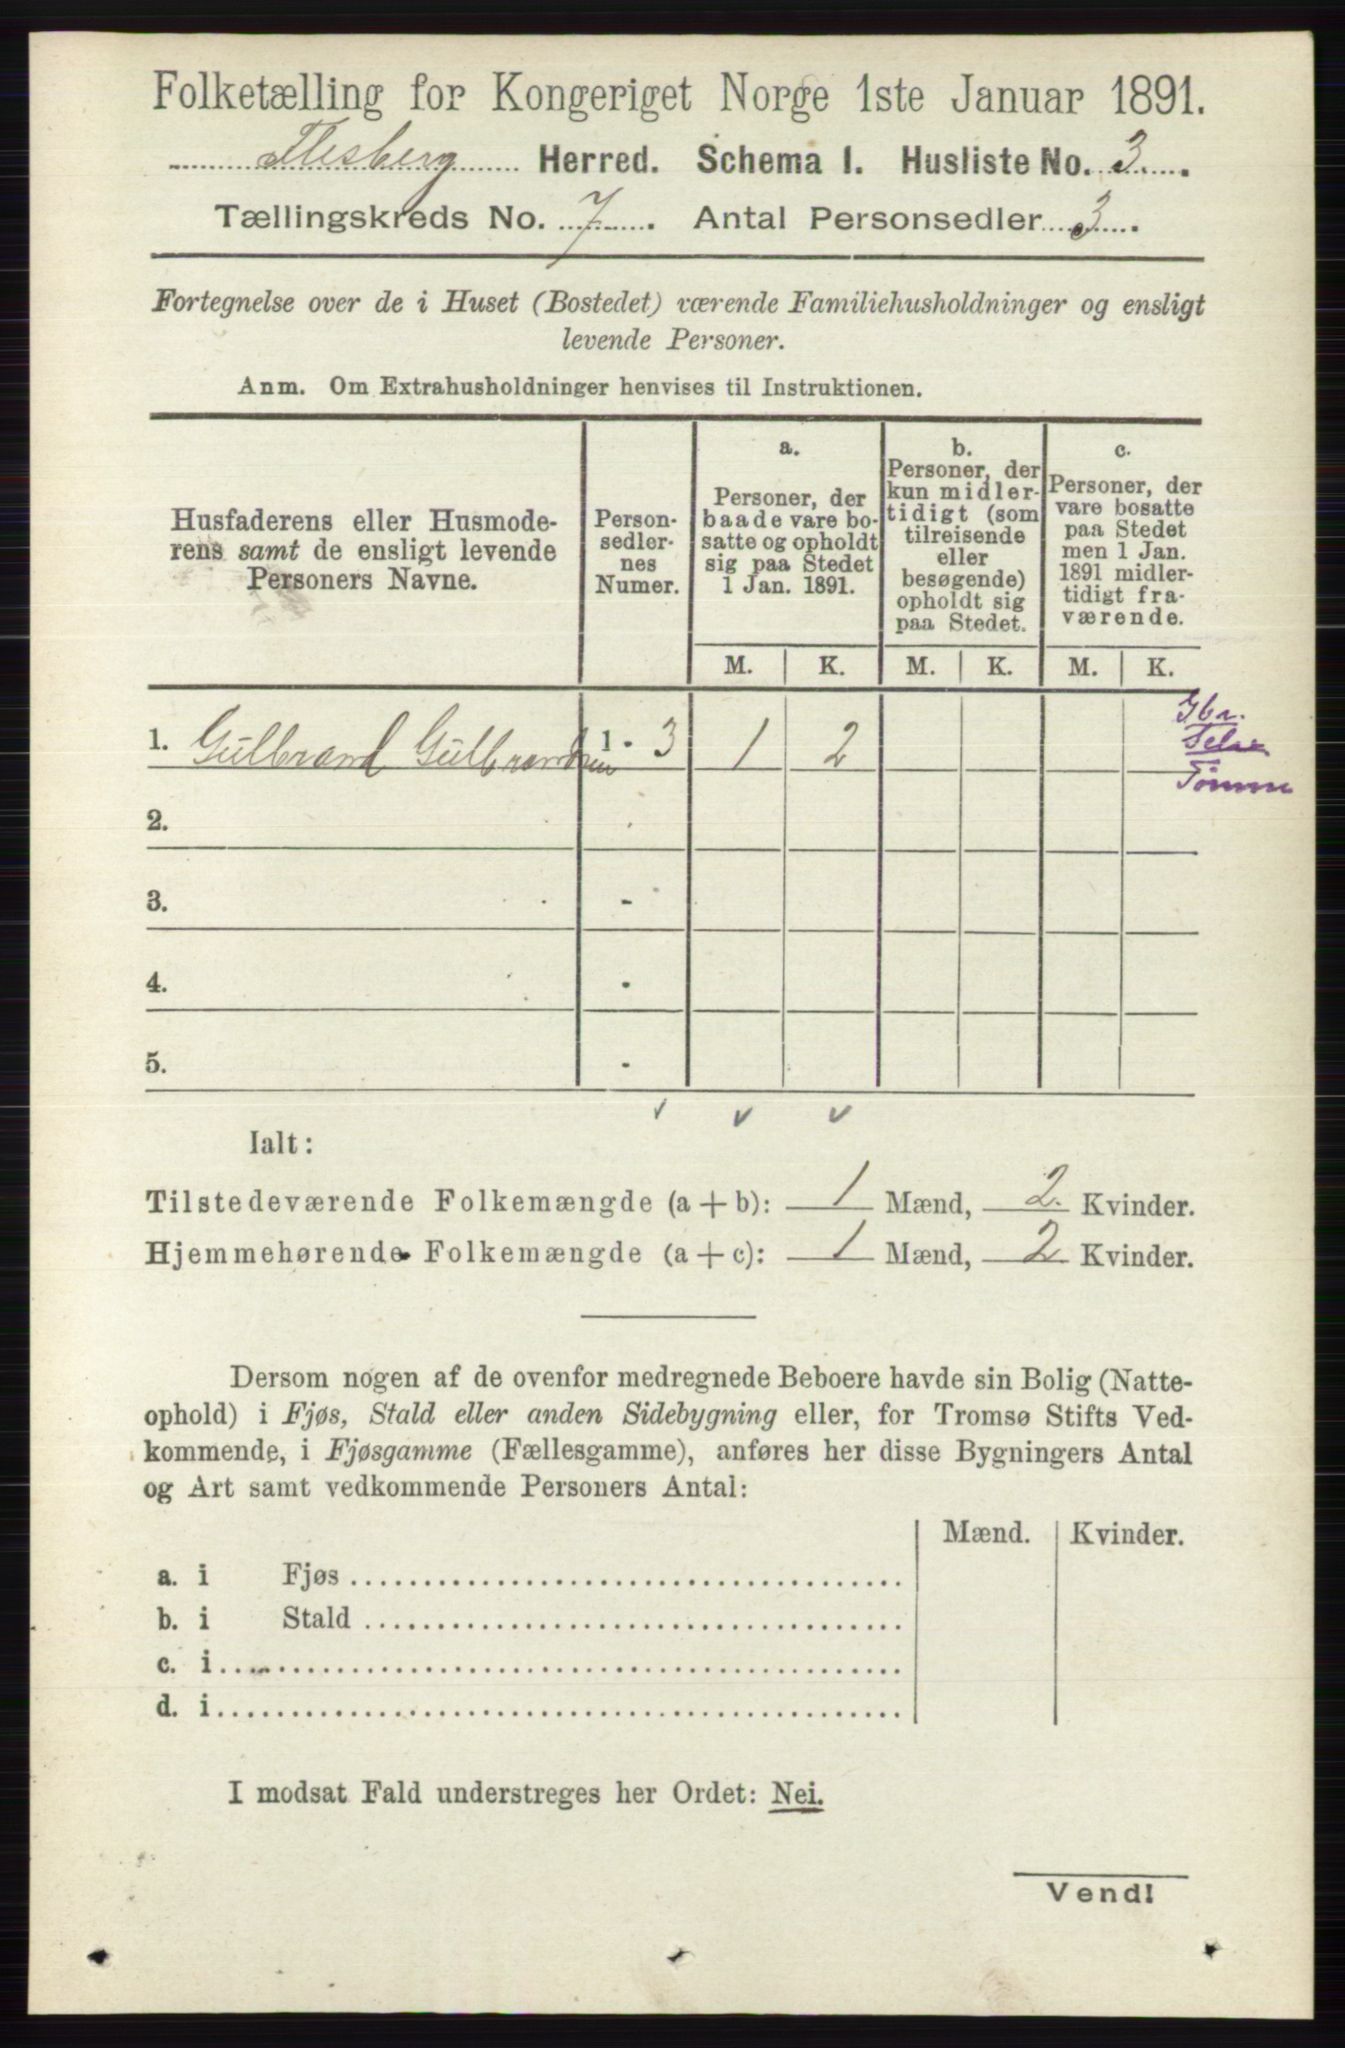 Folketælling for Kongeriget Norge 1ste Januar 1891.
Flesberg Herred. Schema I. Husliste No. 3.
Tællingskreds No. 7. Antal Personsedler 3.
Fortegnelse over de i Huset (Bostedet) værende Familiehusholdninger og ensligt
levende Personer.
Anm. Om Extrahusholdninger henvises til Instruktionen.
Husfaderens eller Husmode-
rens samt de ensligt levende
Personers Navne.
Person-
sedler-
nes
Numer.
a.
Personer, der
baade vare bo-
satte og opholdt
sig paa Stedet
1 Jan. 1891.
b.
Personer, der
kun midler-
tidigt (som
tilreisende
eller
besøgende)
opholdt sig
paa Stedet.
c.
Personer, der
vare bosatte
paa Stedet
men 1 Jan.
1891 midler-
tidigt fra-
værende.
M. K. M. K. M. K.
1. Gulbrand Gulbrandsen 1 - 3 1 2
Gbr.
Selv
Tømm
2.
3. -
4. -
5. -
Ialt:
Tilstedeværende Folkemængde (a + b): 1 Mænd, 2. Kvinder.
Hjemmehørende Folkemængde (a + c): 1 Mænd, 2 Kvinder.
Dersom nogen af de ovenfor medregnede Beboere havde sin Bolig (Natte-
ophold) i Fjøs, Stald eller anden Sidebygning eller, for Tromsø Stifts Ved-
kommende, i Fjøsgamme (Fællesgamme), anføres her disse Bygningers Antal
og Art samt vedkommende Personers Antal:
Mænd. Kvinder.
a. i Fjøs
b. i Stald
c. i
d. i
I modsat Fald understreges her Ordet: Nei.
Vend!